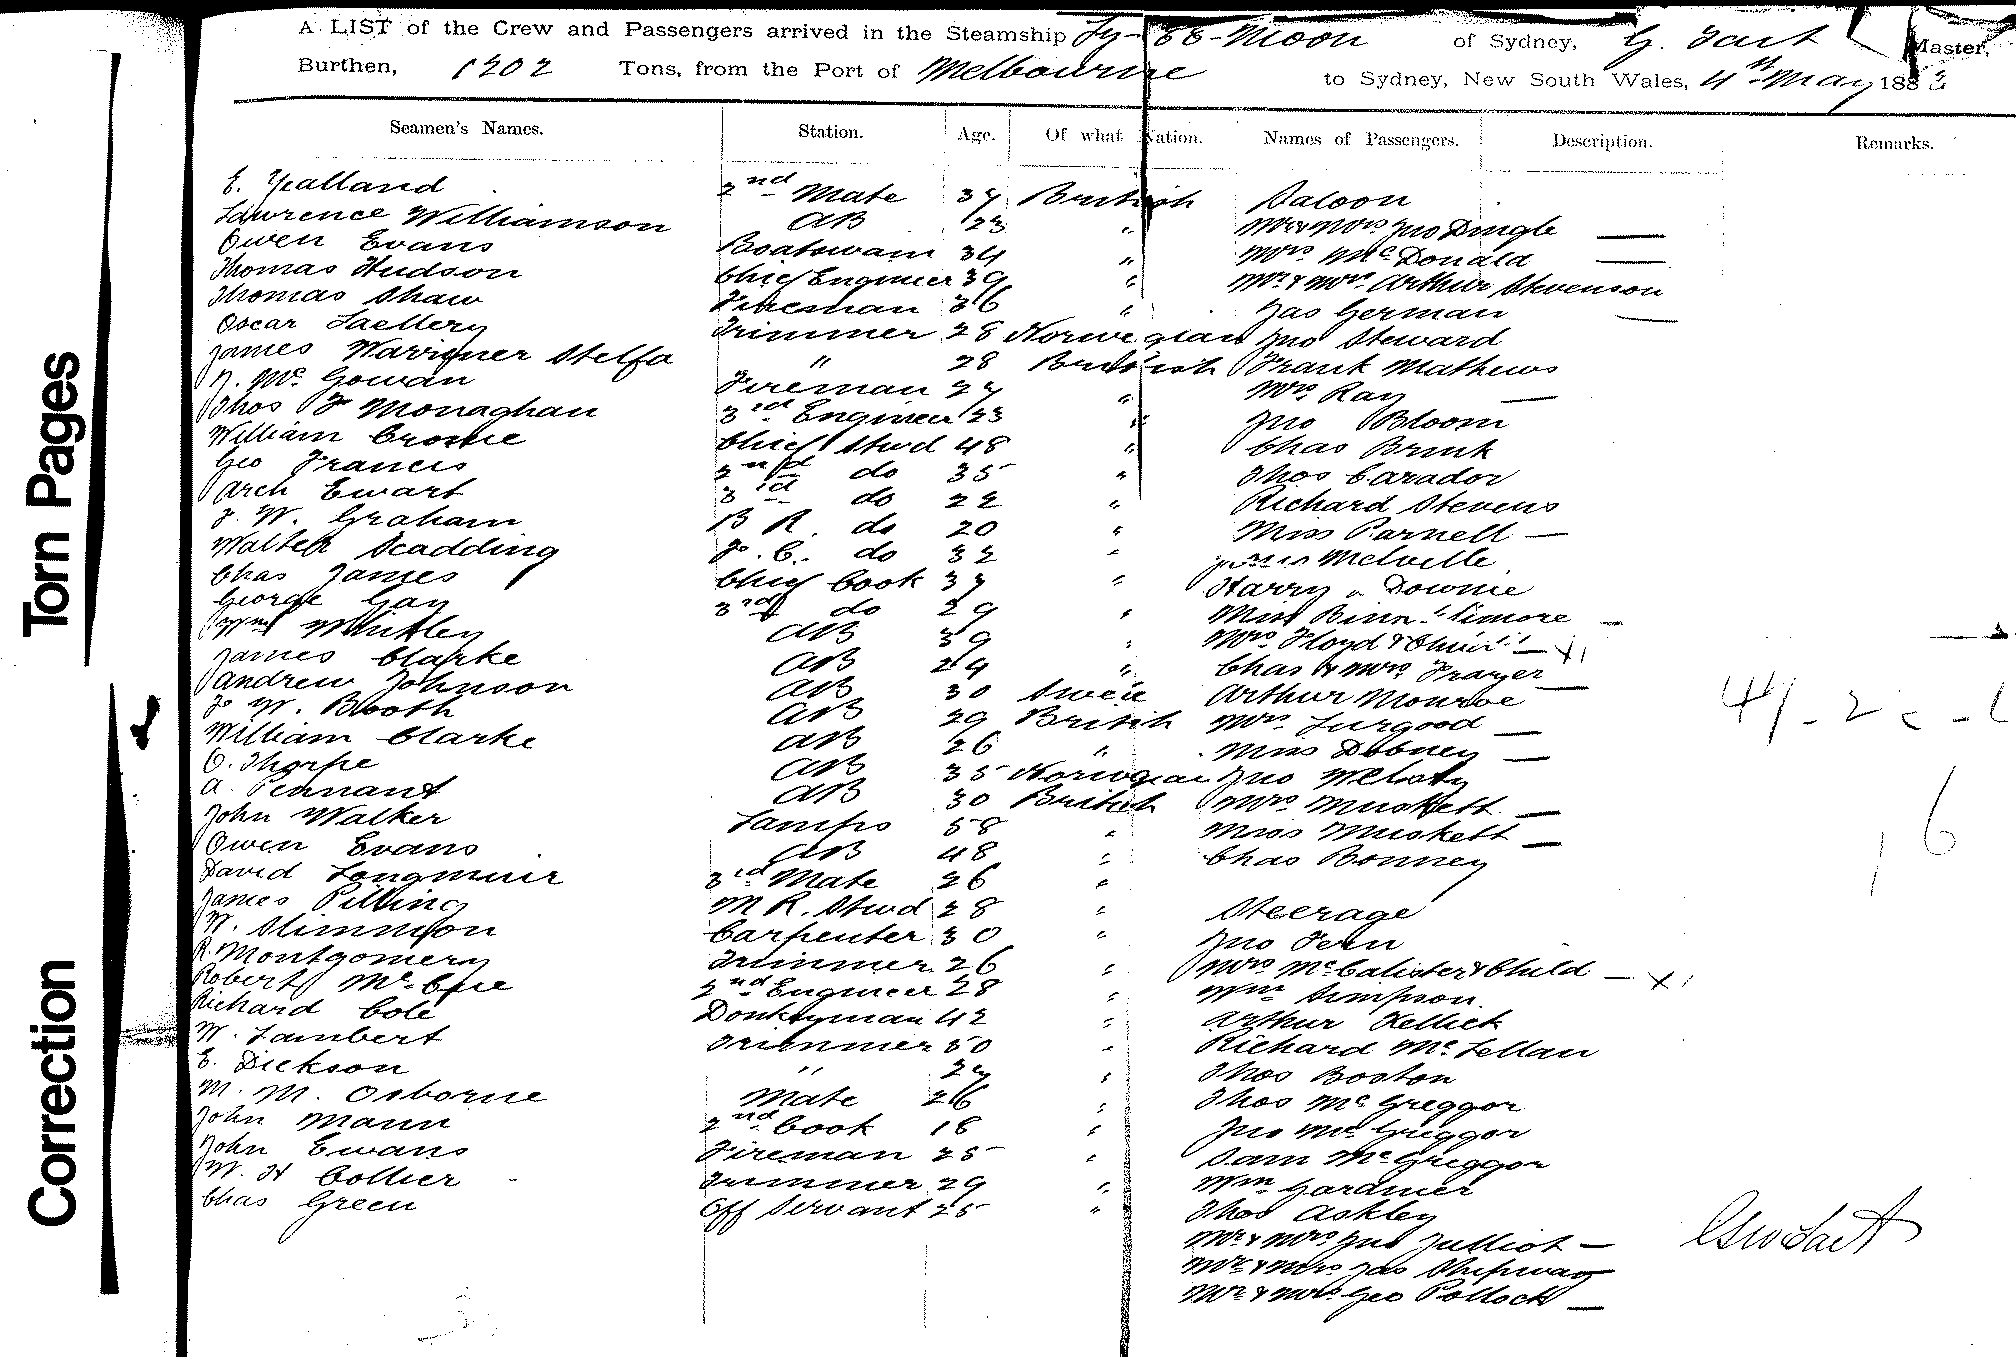 A LIST of the Crew and Passengers arrived in the Steamship Ly-EE-Moon of Sydney, G. Tait Master,
Burthen, 1202 Tons, from the Port of Melbourne to Sydney, New South Wales, 4th May 188
Seamen's Names. Station. Age. Of what Nation. Names of Passengers. Description. Remarks.
E. Yealland 2nd Mate 37 British Saloon
Lawrence Williamson AB 23 " Mr & Mrs Jno Dingle —
Owen Evans Boatswain 34 " Mrs McDonald —
Thomas Hudson Chief Engineer 39 " Mr & Mrs Arthur Stevenson
Thomas Shaw Fireman 36 " Jas German —
Oscar Trimmer 28 Norwegian Jno Steward
James Warriner Stelfa " 28 British Frank Mathews
Mc Gowan Fireman 27 " Mrs Ray —
Thos F Monaghan 3rd Engineer 23 " Jno Bloom
William Crosie Chief Stwd 48 " Chas Brink
Geo Francis 2nd do 35 " Thos Carador
Arch Ewart 3rd do 22 " Richard Stevens
J. W. Graham B R. do 20 " Miss Parnell —
Walter Scadding F. C. do 32 " Melville
Chas James Chief Cook 37 " Harry " Downie
George Gay 3rd do 29 " Miss
Wm Whitley AB 39 " Mrs Floyd & — x1
James Clarke AB 29 " Chas & Mrs Frazer —
Andrew Johnson AB 30 Swede Arthur Monroe
J. W. Booth AB 29 British Mrs Turgood —
William Clarke AB 26 " Miss Dobney —
O. Thorpe AB 35 Norwegian Jno
A. Pennant AB 30 British Mrs Muskett —
John Walker Lamps 58 " Miss Muskett —
Owen Evans AB 48 " Chas Bonney
David Longmuir 3rd Mate 26 "
James Pilling M R. Stwd 28 " Steerage
W. Slimmon Carpenter 30 " Jno Fern
R. Montgomery Trimmer 26 " Mrs McCalister & Child — x1
Robert McCure 2nd Engineer 28 " Wm Simpson
Richard Cole Donkeyman 42 " Arthur Kellick
W. Lambert Trimmer 50 " Richard McLellan
E. Dickson " 27 " Thos Boston
M. M. Osborne Mate 26 " Thos McGreggor
John Mann 2nd Cook 18 " Jno McGreggor
John Ewans Fireman 25 " Sam McGreggor
W. H Collier Trimmer 29 " Wm Gardner
Chas Green Off Servant 25 " Thos Askley
Mr & Mrs Jno Julliot —
Mr & Mrs Jas Shipway
Mr & Mrs Geo Pollock —
16
Geo Tait
Torn Pages
Correction